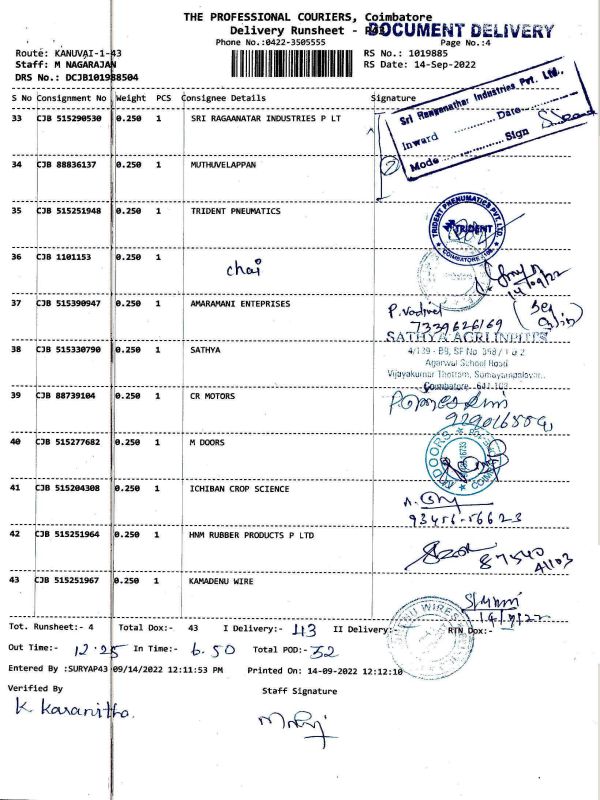 THE PROFESSIONAL COURIERS, Coimbatore
Delivery Runsheet -
DOCUMENT DELIVERY
Phone No.:0422-3505555
Page No.:4
Route: KANUVAI-1-43
RS No.: 1019885
Staff: M NAGARAJAN
RS Date: 14-Sep-2022
DRS No.: DCJB101988504
S No Consignment No Weight PCS Consignee Details Signature
33 CJB 515290530 0.250 1 SRI RAGAANATAR INDUSTRIES P LT
Sri Raaganathar Industries Pvt. Ltd.,
Inward ............ Date ............
Mode ............ Sign
34 CJB 88836137 0.250 1 MUTHUVELAPPAN
35 CJB 515251948 0.250 1 TRIDENT PNEUMATICS
TRIDENT PNEUMATICS PVT. LTD.
TRIDENT
COIMBATORE
36 CJB 1101153 0.250 1 chai
14/09/22
37 CJB 515390947 0.250 1 AMARAMANI ENTEPRISES
P. Vadivel
7339626169
38 CJB 515330790 0.250 1 SATHYA
SATHYA AGRI INPUTS
4/139 - B9, SF No. 398 / 1 & 2
Agarwal School Road
Vijayakumar Thottam, Somayampalayam,
Coimbatore - 641 108
39 CJB 88739104 0.250 1 CR MOTORS
40 CJB 515277682 0.250 1 M DOORS
M DOORS
41 CJB 515204308 0.250 1 ICHIBAN CROP SCIENCE
93456-56623
42 CJB 515251964 0.250 1 HNM RUBBER PRODUCTS P LTD
87540
41103
43 CJB 515251967 0.250 1 KAMADENU WIRE
Tot. Runsheet:- 4 Total Dox:- 43 I Delivery:- 43 II Delivery:- RTN Dox:-
Out Time:- 12.25 In Time:- 6.50 Total POD:- 32
Entered By :SURYAP43 09/14/2022 12:11:53 PM Printed On: 14-09-2022 12:12:10
Verified By Staff Signature
K. Karanitha.